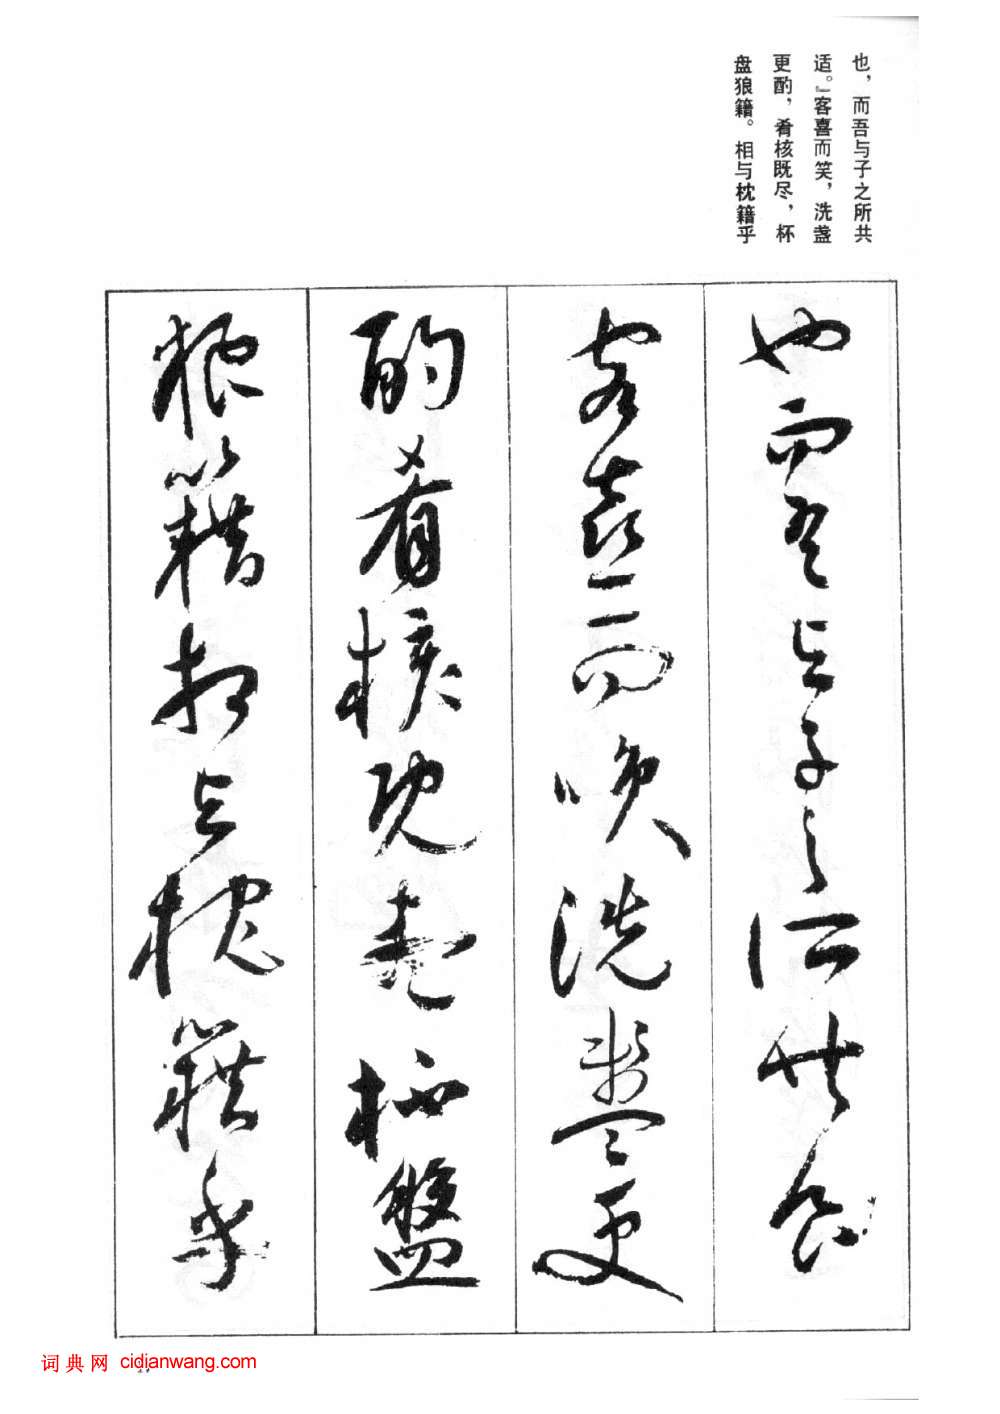 也，而吾与子之所共
适。』客喜而笑，洗盏
更酌，肴核既尽，杯
盘狼籍。相与枕籍乎
也而吾与子之所共食
客喜而咲洗盞更
酌肴核既盡杯盤
狼籍相与枕籍乎
词典网 cidianwang.com